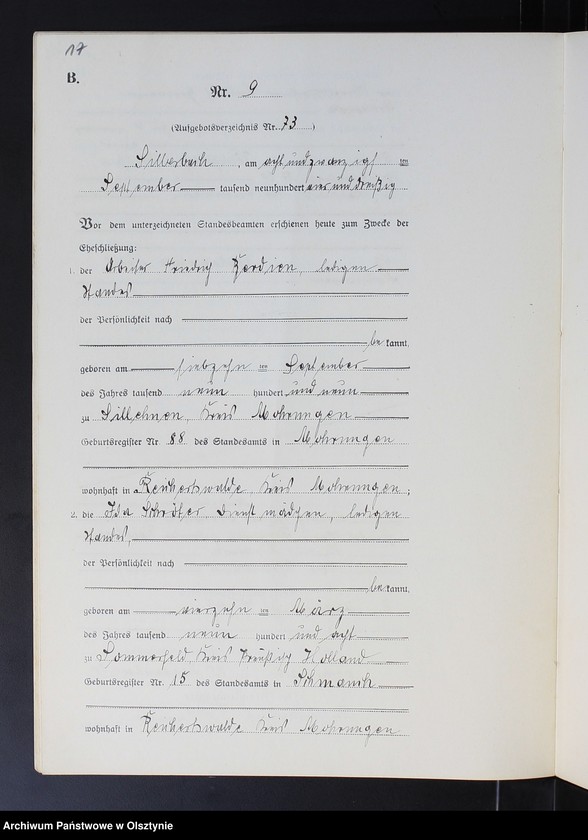 17
B.
Nr. 9
(Aufgebotsverzeichnis Nr. 73)
Silberbach, am acht und zwanzigsten
September tausend neunhundert vier und dreißig
Vor dem unterzeichneten Standesbeamten erschienen heute zum Zwecke der
Eheschließung:
1. der Arbeiter Friedrich Kordien, ledigen
Standes
der Persönlichkeit nach
be kannt,
geboren am siebzehn ten September
des Jahres tausend neun hundert und neun
zu Sillehnen, Kreis Mohrungen
Geburtsregister Nr. 88 des Standesamts in Mohrungen
wohnhaft in Reichertswalde Kreis Mohrungen;
2. die Ida Schröter Dienstmädchen, ledigen
Standes,
der Persönlichkeit nach
be kannt,
geboren am vierzehn ten März
des Jahres tausend neun hundert und acht
zu Sommerfeld Kreis Preußisch Holland
Geburtsregister Nr. 15 des Standesamts in Schmauch
wohnhaft in Reichertswalde Kreis Mohrungen
Archiwum Państwowe w Olsztynie